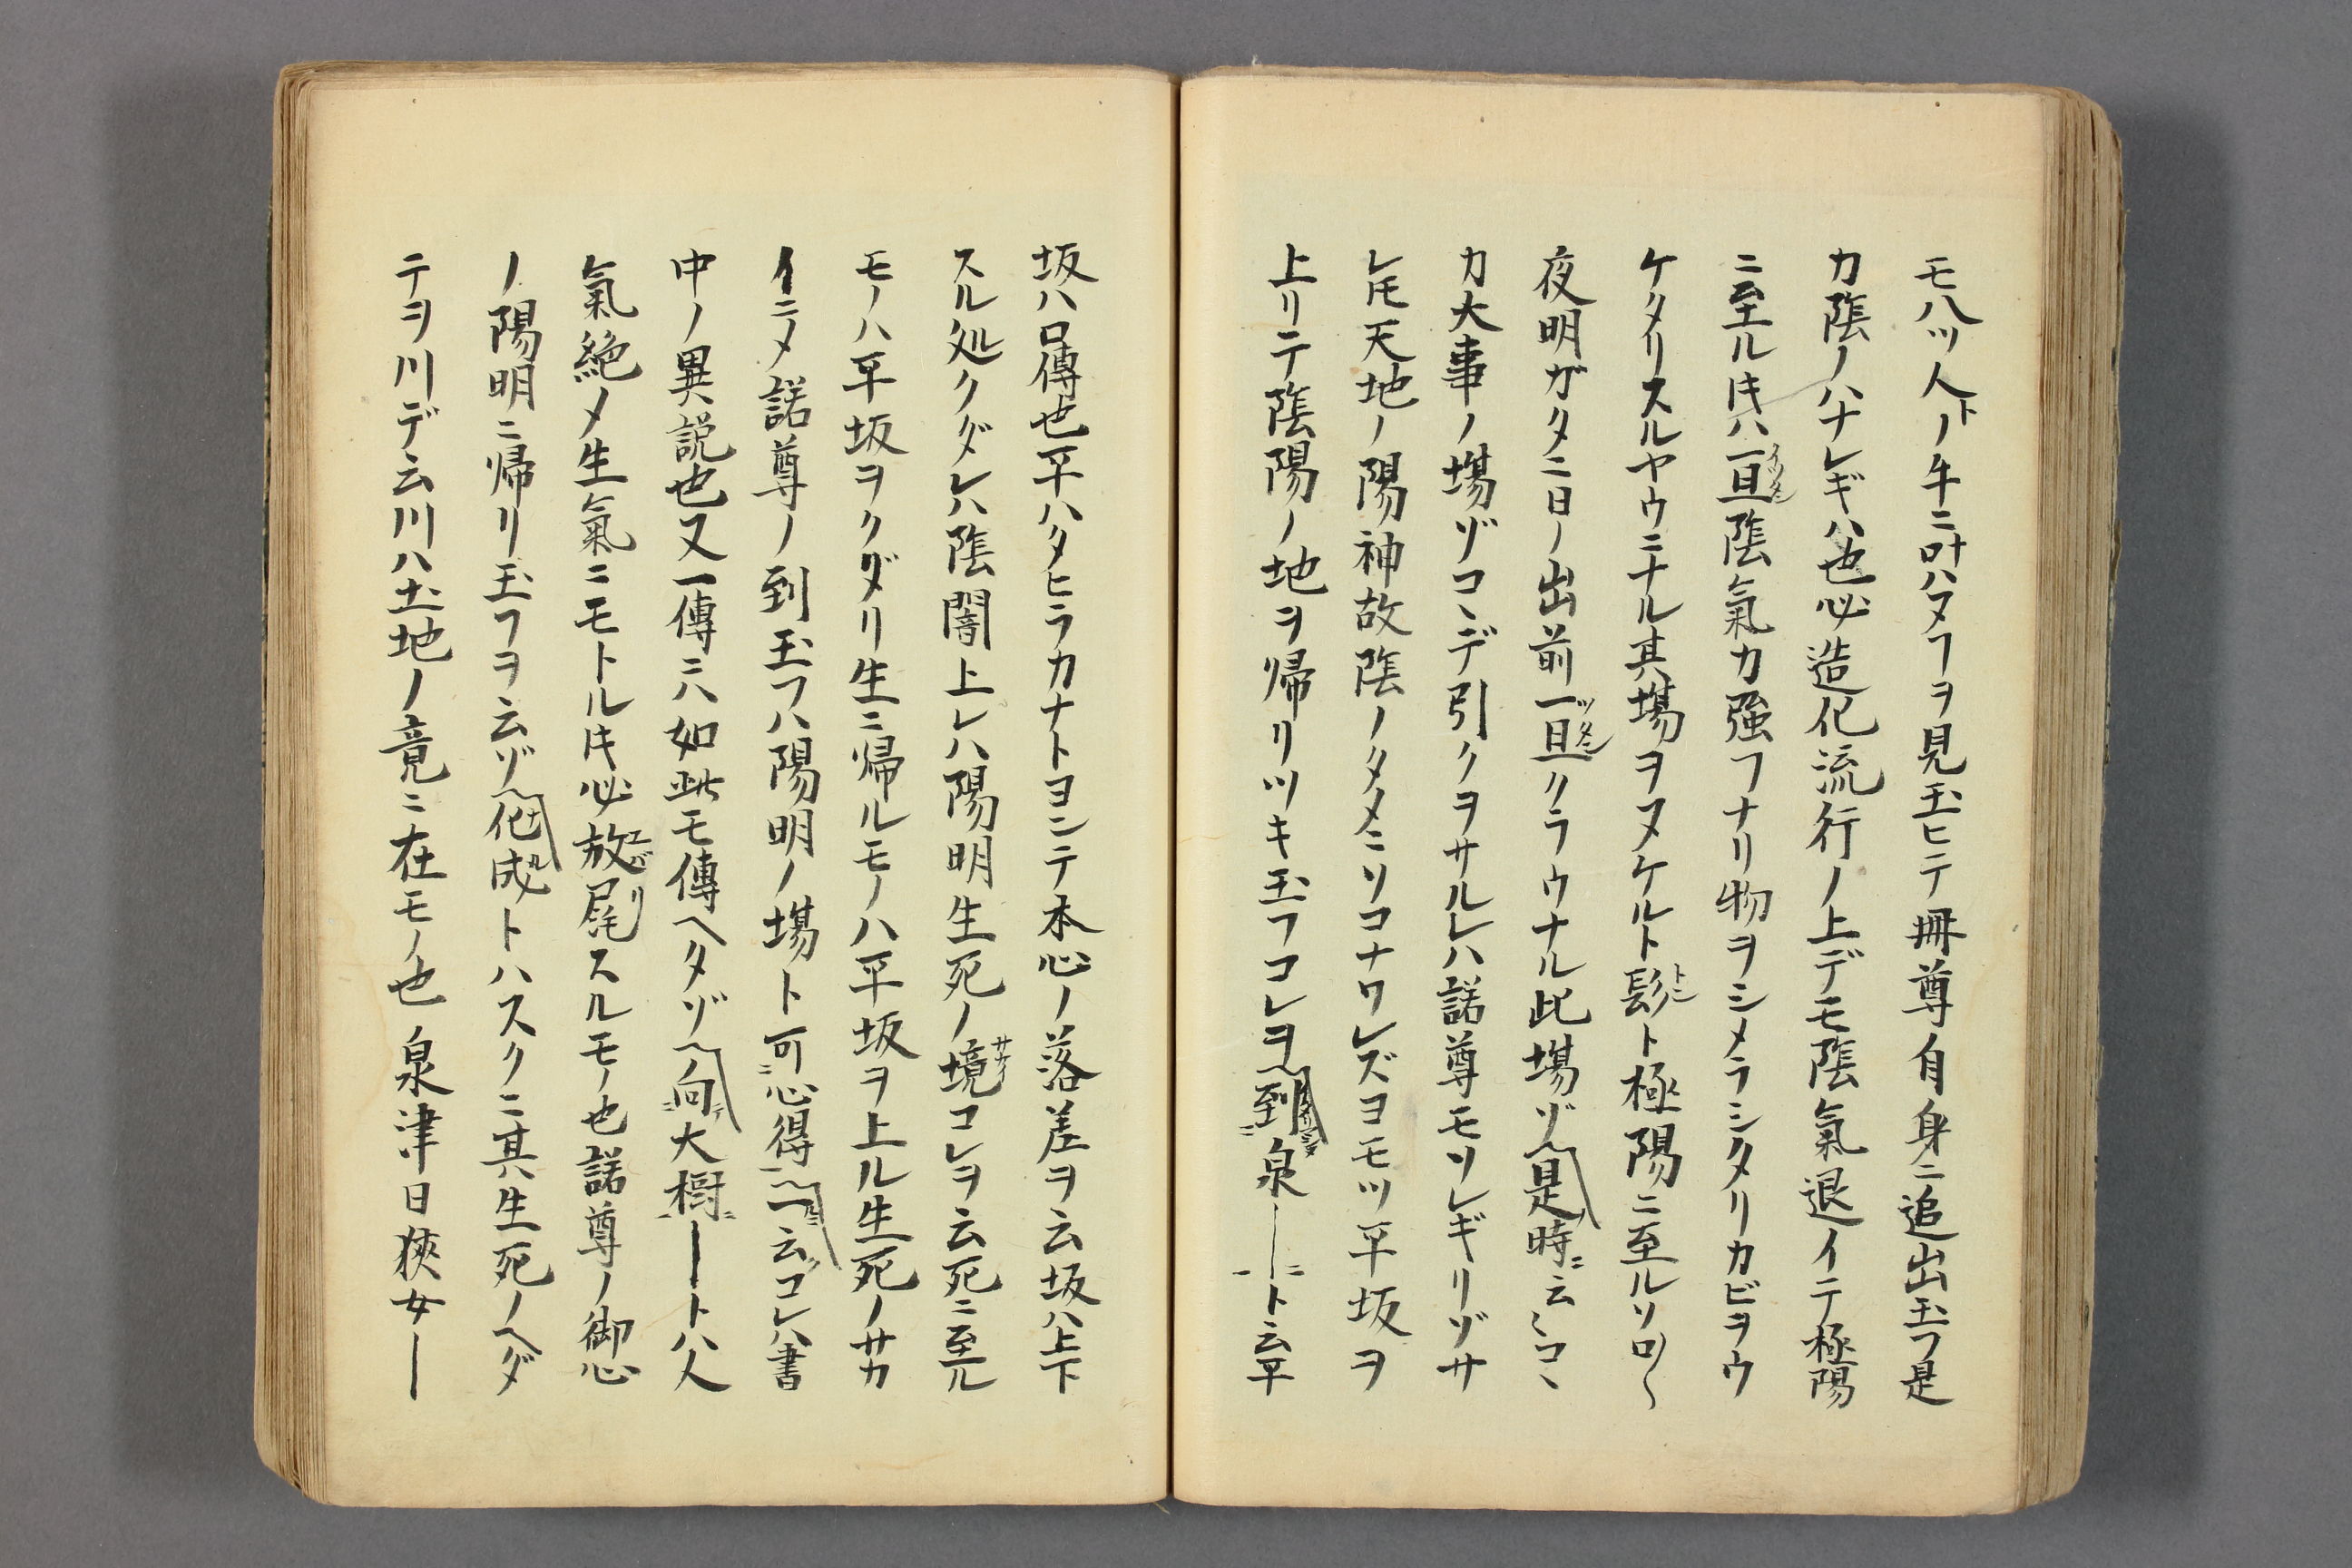 モ八ツ人ノ牛ニ叶ハヌヿヲ見玉ヒテ冊尊自身ニ追出玉フ是
カ陰ノハナレギハ也必造化流行ノ上デモ陰氣退イテ極陽
ニ至ル𪜈ハ一旦陰氣カ強フナリ物ヲシメラシタリカビヲウ
ケタリスルヤウニナル其場ヲヌケルト髟ト極陽ニ至ルソ
夜明ガタニ日ノ出前一旦クラウナル此場ゾ是時云〻コヽ
カ大事ノ場ゾコヽデ引クヲサルレハ諾尊モソレギリゾサ
レ𪜈天地ノ陽神故陰ノタメニソコナワレズヨモツ平坂ヲ
上リテ陰陽ノ地ヲ帰リツキ玉フコレヲ到泉――ト云平
坂ハ口傳也平ハタヒラカナトヨンテ本心ノ落差ヲ云坂ハ上下
スル処クダレハ陰闇上レハ陽明生死ノ境コレヲ云死ニ至ル
モノハ平坂ヲクダリ生ニ帰ルモノハ平坂ヲ上ル生死ノサカ
イニ〆諾尊ノ到玉フハ陽明ノ場ト可心得一云コレハ書
中ノ異説也又一傳ニハ如此モ傳ヘタゾ向大樹―トハ人
氣絶〆生氣ニモトル𪜈必放尿スルモノ也諾尊ノ御心
ノ陽明ニ帰リ玉フヲ云ゾ化成トハスクニ其生死ノヘダ
テヲ川デ云川ハ土地ノ竟ニ在モノ也 泉津日狹女―